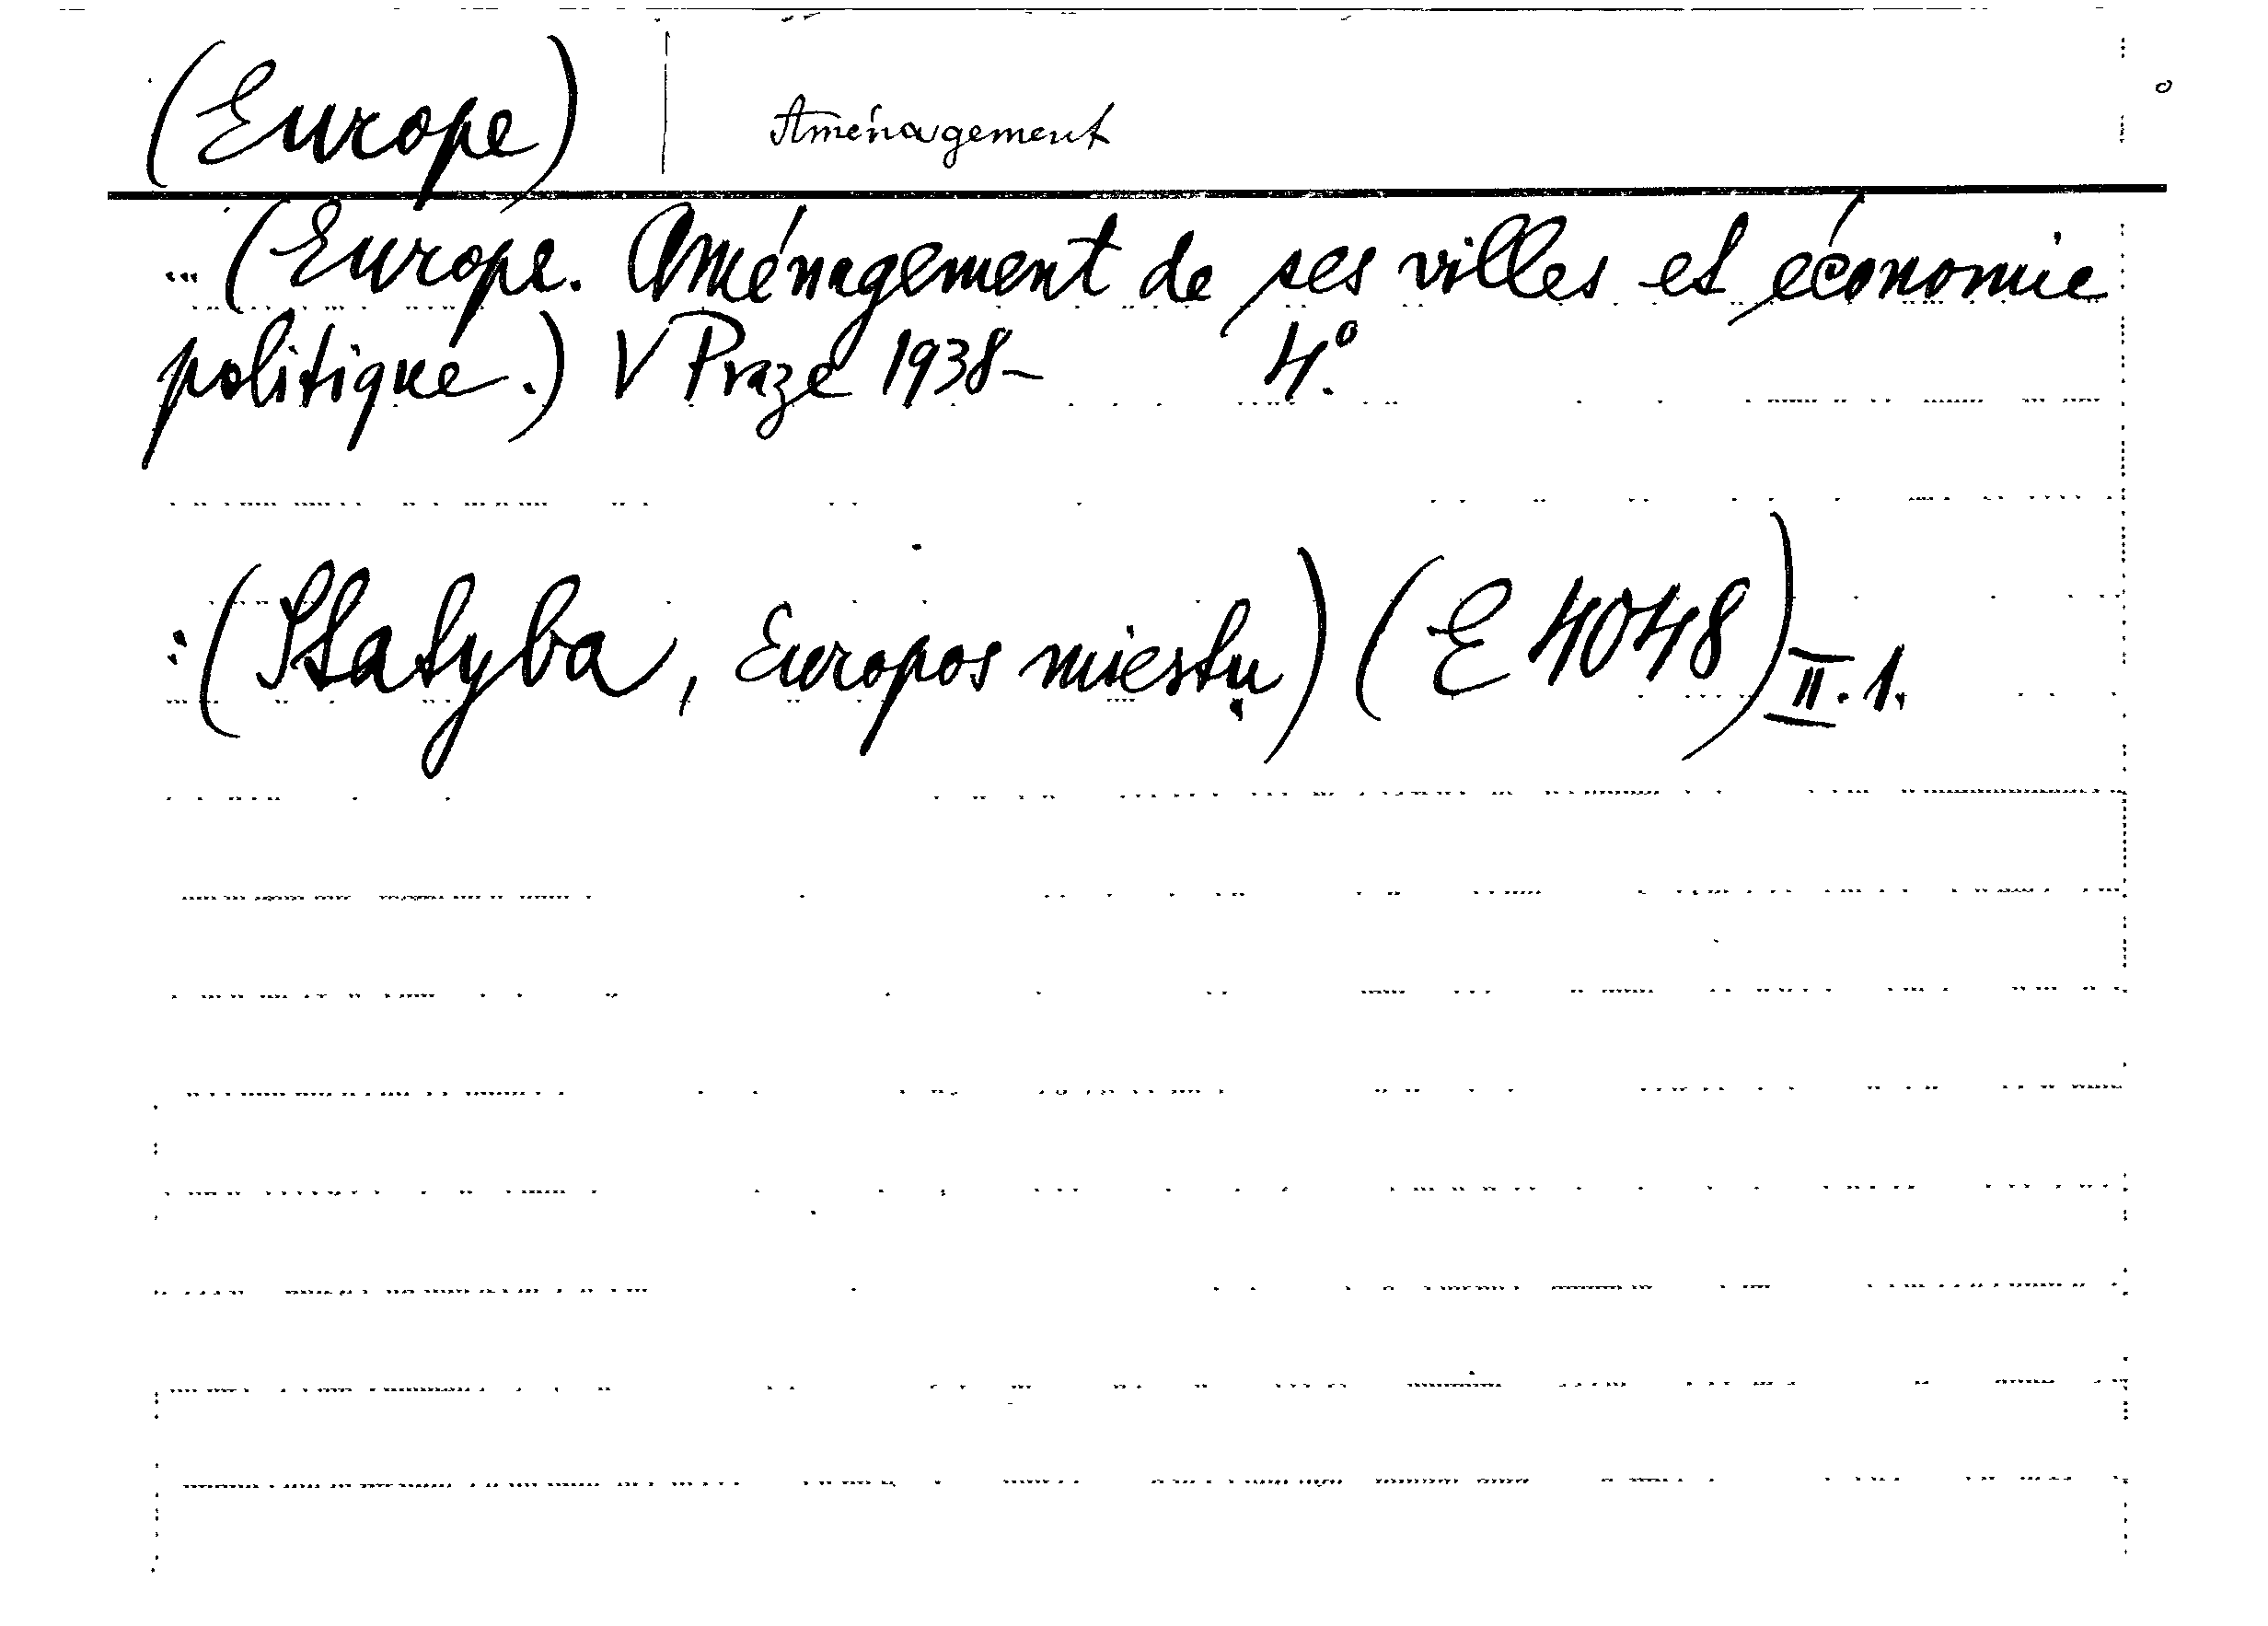 (Europe) | Aménagement
(Europe. Aménagement de ses villes et économie
politique.) V Praze 1938- 4.º
(Statyba, Europos miestų) (E 4048) II.1.